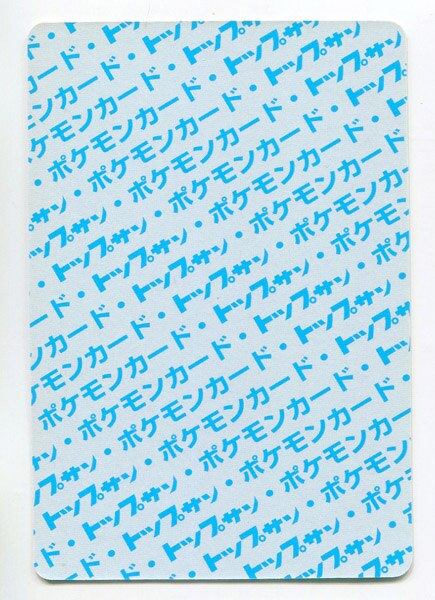 ード・
モンカード・トップサン
ポケモンカード・トップサン・
・ポケモンカード・トップサン・
サン・ポケモンカード・トップサン
トップサン・ポケモンカード・トップ
・トップサン・ポケモンカード・
ード・トップサン・ポケモンカード
ンカード・トップサン・ポケモン
ケモンカード・トップサン・ポケ
・ポケモンカード・トップサン・
サン・ポケモンカード・トップサン
トップサン・ポケモンカード・トップ
・トップサン・ポケモンカード・
ード・トップサン・ポケモンカード
・トップサン・ポケ